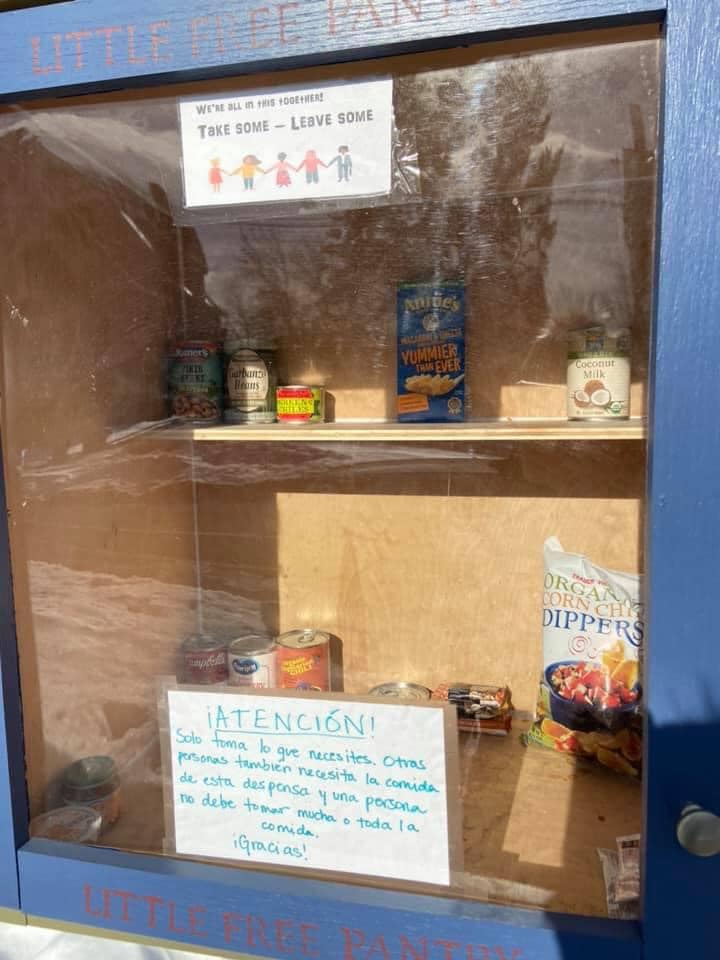 LITTLE FREE PANTRY
WE'RE ALL IN THIS TOGETHER!
TAKE SOME – LEAVE SOME
Annie's
MACARONI & CHEESE
YUMMIER
THAN EVER
Garbanzo
Beans
Coconut
Milk
ORGANIC
CORN CHIP
DIPPERS
Campbell's
¡ATENCIÓN!
Solo toma lo que necesites. Otras
personas también necesita la comida
de esta despensa y una persona
no debe tomar mucha o toda la
comida.
¡Gracias!
LITTLE FREE PANTRY